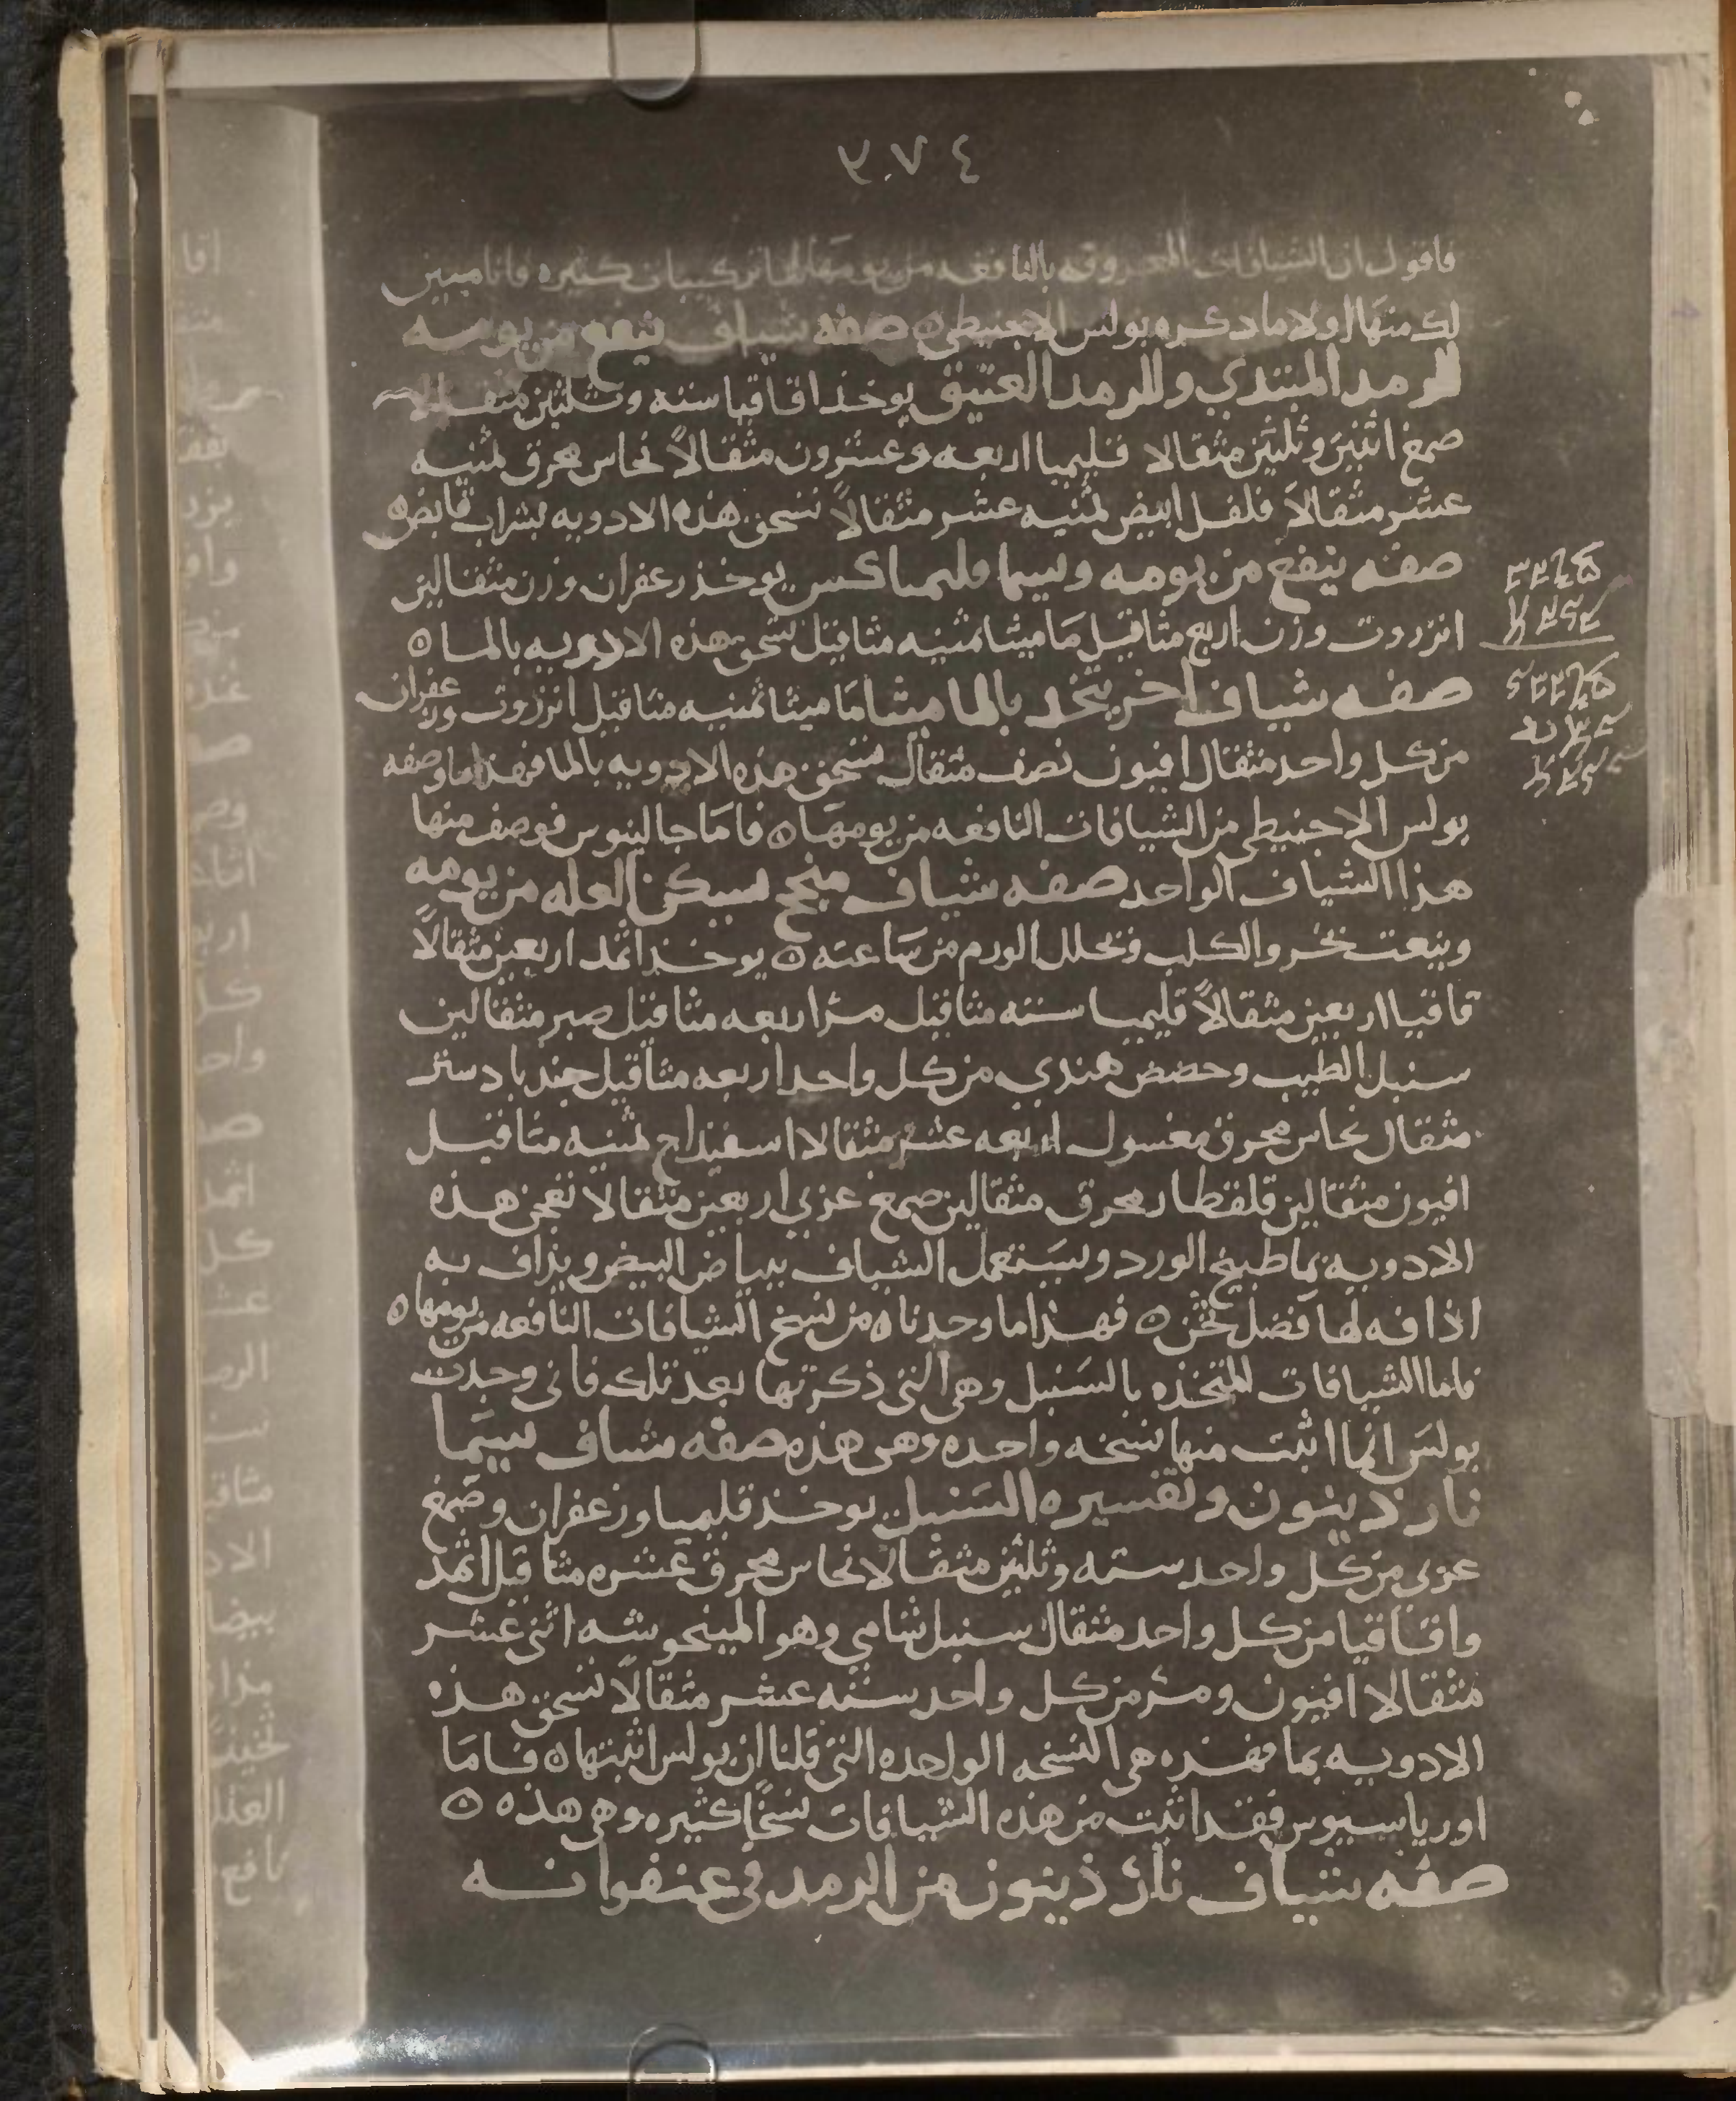 فاقول ان الشيافات المعروفه بالنافعه من يومها لها تركيبات كثيره وانا مبين
لك منها اولا ما ذكره بولس الاجنيطي ه صفه شياف ينفع من يومه
للرمد المبتدي وللرمد العتيق يوخذ اقاقيا سته وثلثين مثقالا
صمغ اثنين وثلثين مثقالا قليميا اربعه وعشرون مثقالاً نحاس محرق ثمنيه
عشر مثقالاً فلفل ابيض ثمنيه عشر مثقالاً تسحق هذه الادويه بشراب قابض ه
صفه ينفع من يومه ويسما فليماكس يوخذ زعفران وزن مثقالين
انزروت وزن اربع مثاقيل ماميثا ثمنيه مثاقيل تسحق هذه الادويه بالما ه
صفه شياف اخر يتخذ بالماميثا ماميثا ثمنيه مثاقيل انزروت وزعفران
من كل واحد مثقال افيون نصف مثقال تسحق هذه الادويه بالما فهذا ما وصفه
بولس الاجنيطي من الشيافات النافعه من يومها ه فاما جالينوس فوصف منها
هذا الشياف الواحد صفه شياف منجح يسكن العله من يومه
وينعت والكلب ويحلل الورم من ساعته ه يوخذ اثمد اربعين مثقالاً
قاقيا اربعين مثقالاً قليميا سته مثاقيل مر اربعه مثاقيل صبر مثقالين
سنبل الطيب وحضض هندي من كل واحد اربعه مثاقيل جندبادستر
مثقال نحاس محرق مغسول اربعه عشر مثقالا اسفيذاج ثمنيه مثاقيل
افيون مثقالين قلقطار محرق مثقالين صمغ عربي اربعين مثقالا تعجن هذه
الادويه بما طبيخ الورد ويستعمل الشياف ببياض البيض ويذاف به
اذافه لها فضل ثخن ه فهذا ما وجدناه من نسخ الشيافات النافعه من يومها ه
فاما الشيافات المتخذه بالسنبل وهي التي ذكرتها بعد تلك فاني وجدت
بولس انما اثبت منها نسخه واحده وهي هذه صفه شياف يسما
نارذينون وتفسيره السنبل يوخذ قليميا وزعفران وصمغ
عربي من كل واحد سته وثلثين مثقالا نحاس محرق عشره مثاقيل اثمد
واقاقيا من كل واحد مثقال سنبل شامي وهو المينحوشه اثني عشر
مثقالا افيون ومر من كل واحد سته عشر مثقالاً تسحق هذه
الادويه بما فهذه هي النسخه الواحده التي قلنا ان بولس اثبتها ه فاما
اورياسيوس فقد اثبت من هذه الشيافات نسخاً كثيره وهي هذه ه
صفه شياف نارذينون من الرمد في عنفوانه